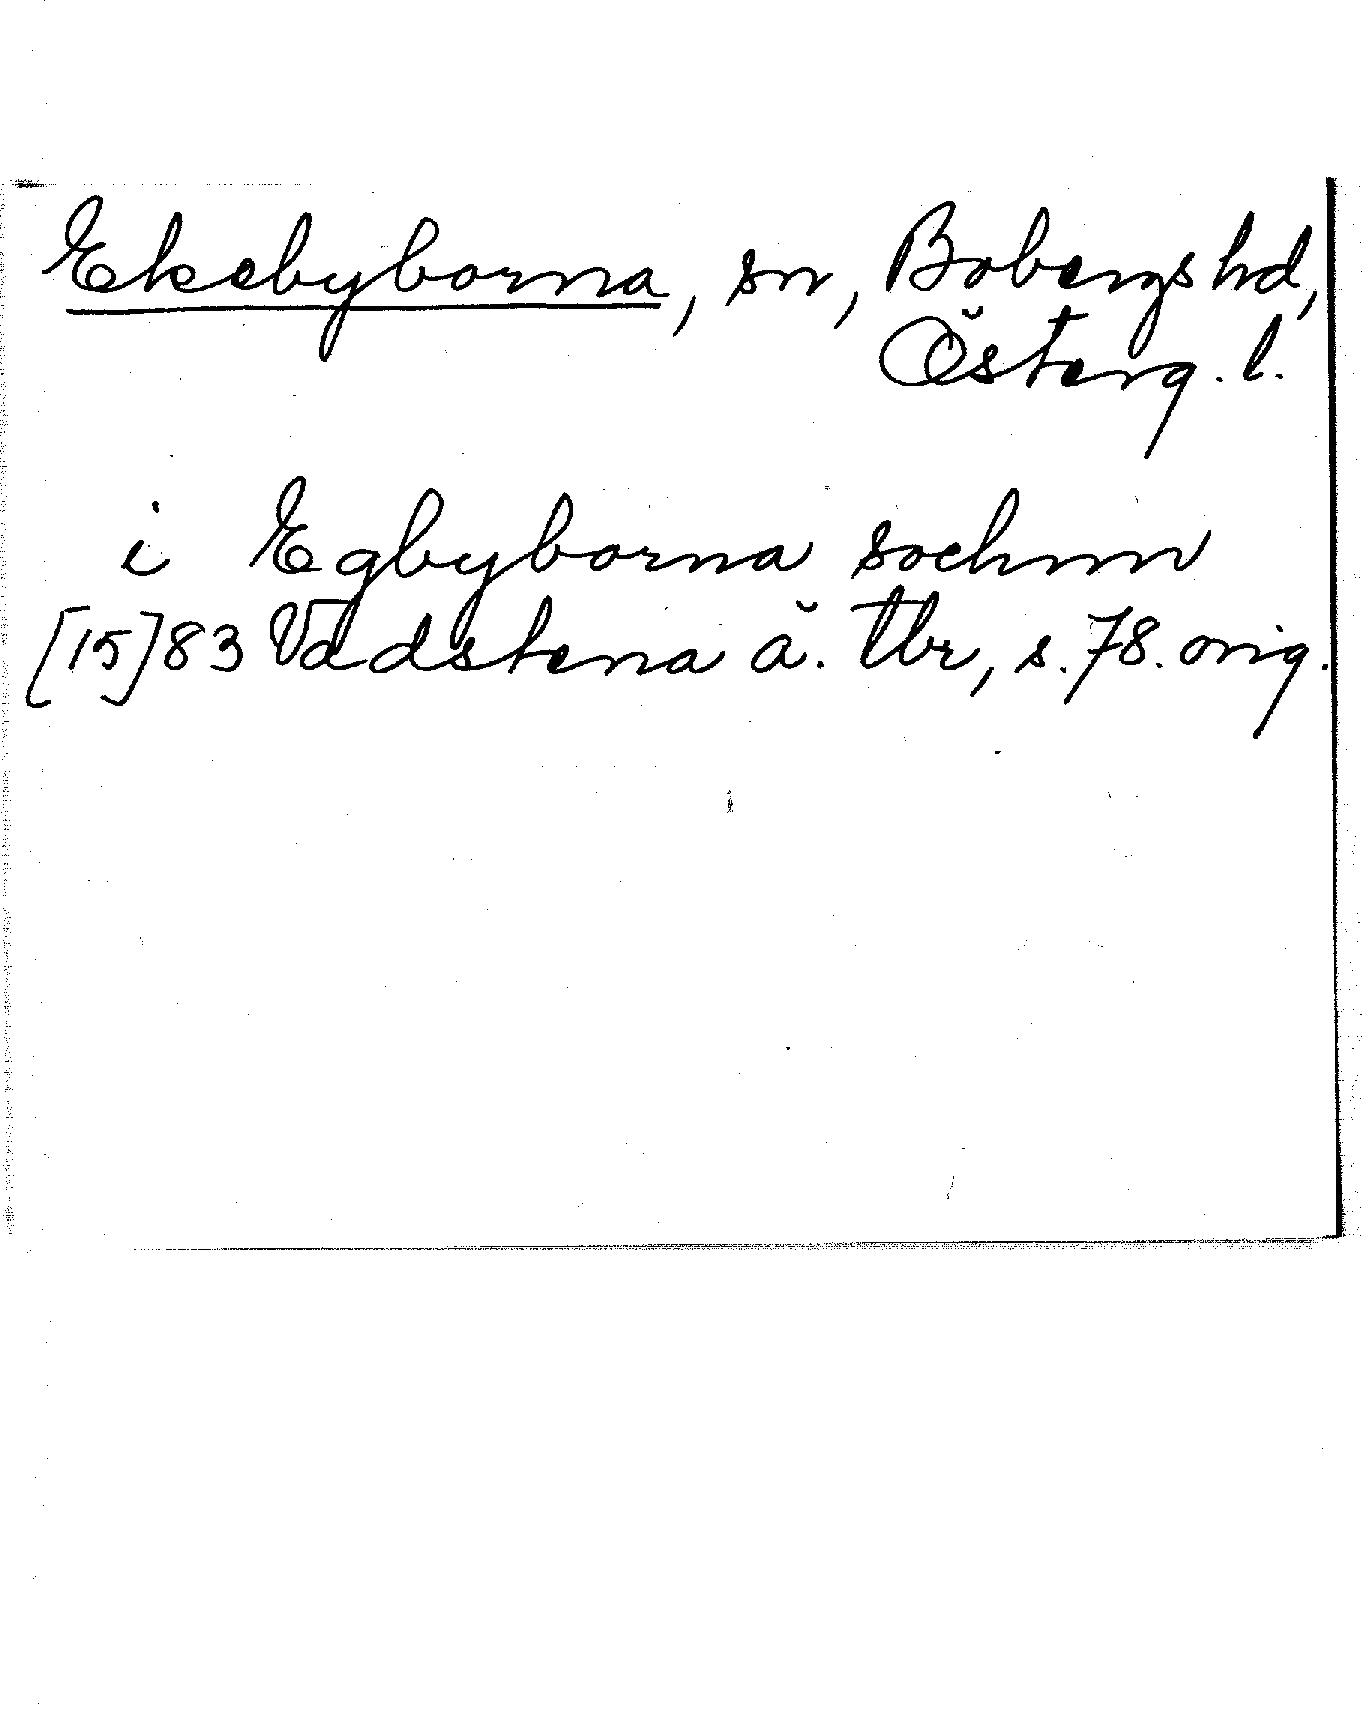 Ekebyborna, sn, Bobergs hd,
Österg. l.
i Egbyborna sochnn
[15]83 Vadstena ä. Tbr, s. 78. orig.